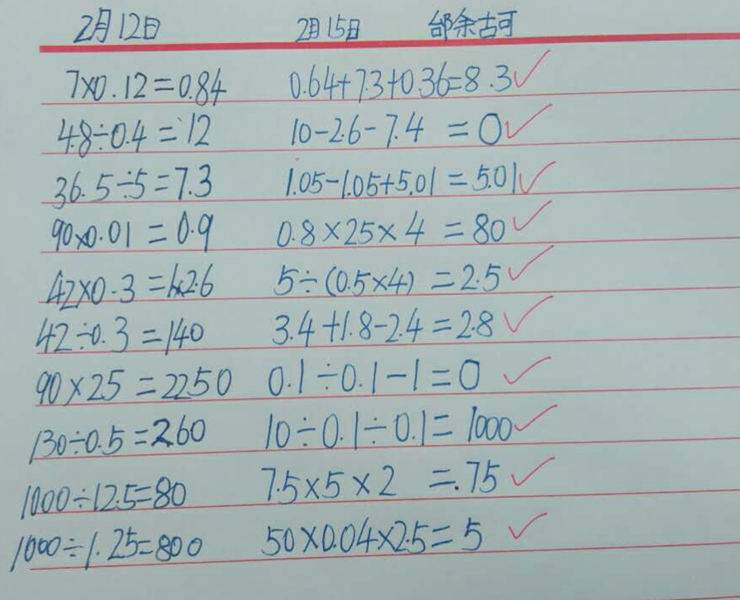 2月12日 2月15日 邰余古可
7×0.12=0.84 0.64+7.3+0.36=8.3
4.8÷0.4=12 10-2.6-7.4=0
36.5÷5=7.3 1.05-1.05+5.01=5.01
90×0.01=0.9 0.8×25×4=80
42×0.3=12.6 5÷(0.5×4)=2.5
42÷0.3=140 3.4+1.8-2.4=2.8
90×25=2250 0.1÷0.1-1=0
130÷0.5=260 10÷0.1÷0.1=1000
1000÷12.5=80 7.5×5×2=75
1000÷1.25=800 50×0.04×2.5=5